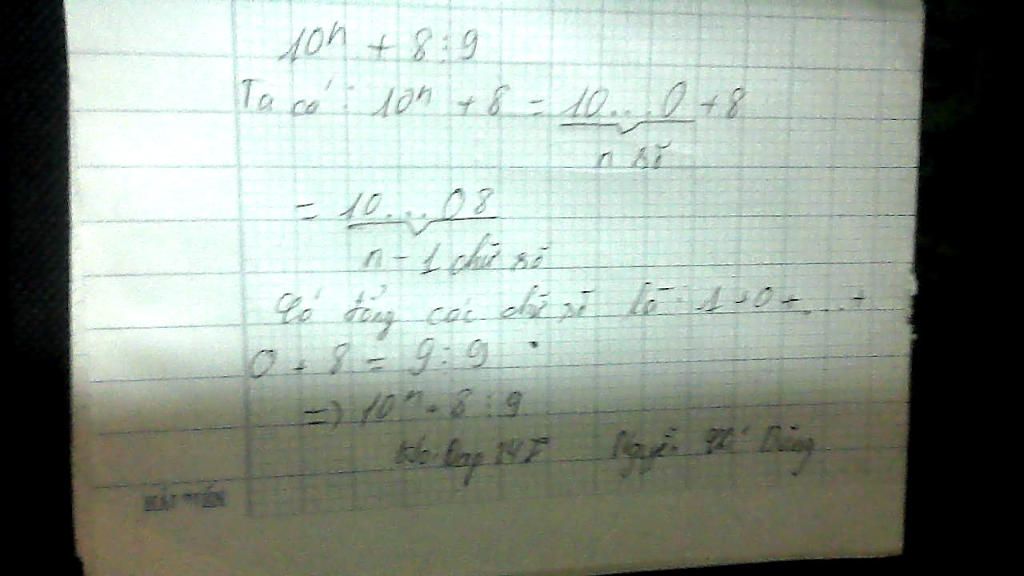 10ⁿ + 8 ⋮ 9
Ta có : 10ⁿ + 8 = 10...0 + 8
n số
= 10...08
n - 1 chữ số
Có tổng các chữ số là : 1 + 0 + ... +
0 + 8 = 9 ⋮ 9
=> 10ⁿ + 8 ⋮ 9
Nguyễn Dũng
HẢI TIẾN